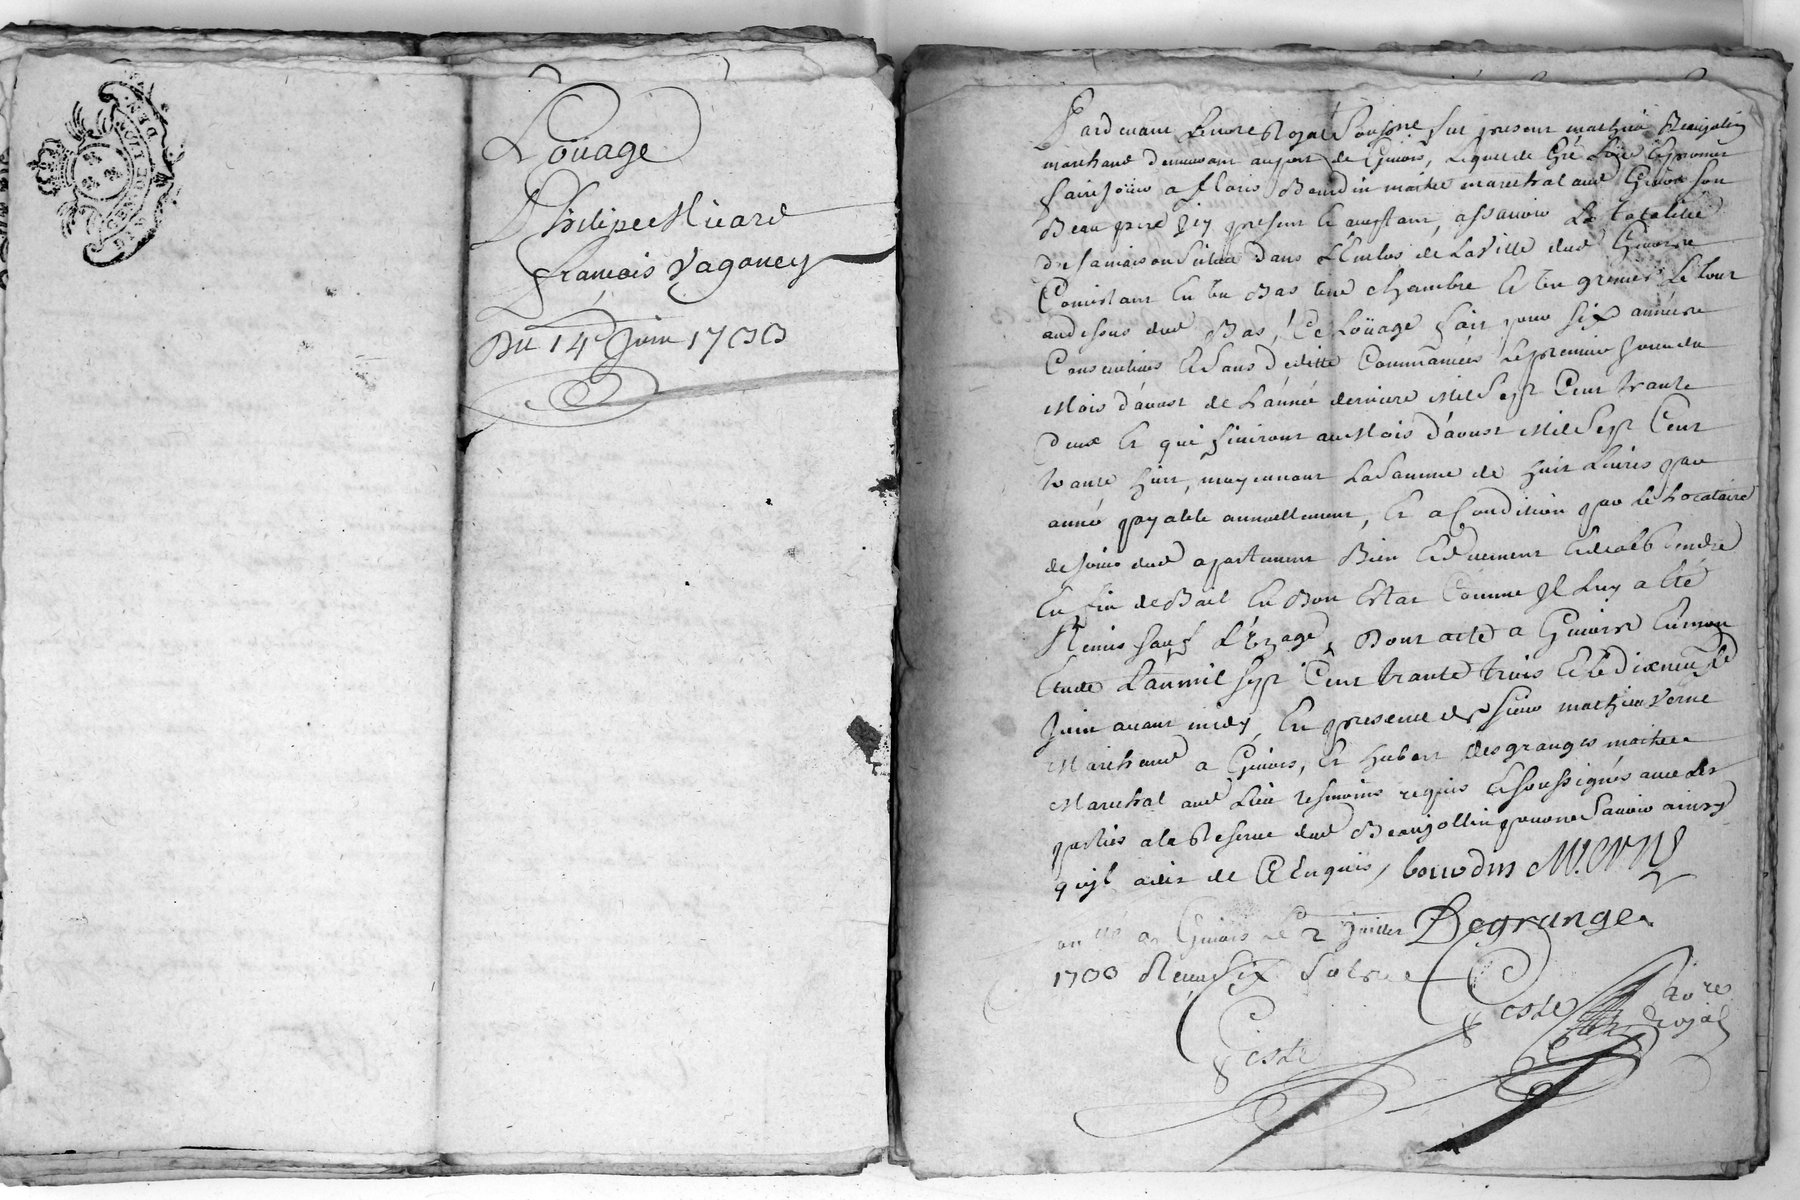 GEN. DE LYON
Loüage
Philipe Micard
françois Vaganey
Du 14e Juin 1733
Pardevant Le nore Royal Soussigné fut present mathieu Beaujolin
marchand demeurant au port de Givors, Lequel de Gré Loue et promet
faire Joüir a Bourdin maitre marechal aud Givors son
Beau pere Icy present et acceptant, assavoir La totalitée
de sa maison Située dans L'Enclos de La Ville dud Givors
Consistant En un Bas une chambre Et un grenier Le tout
au dessus dud Bas, Ce Loüage fait pour six années
Consecutives Et Sans deditte Commancées Le premier Jour du
Mois d'aoust de L'année derniere Mil Sept Cent trante
deux Et qui finiront au Mois d'aoust Mil Sept Cent
trante huit, moyennant La Somme de huit Livres par
année payable annuellement, Et a Condition par Le Locataire
de Joüir dud apartement Bien Et duement Et de Les rendre
En fin de Bail En Bon Estat Comme Il Luy a Eté
Remis sauf L'Uzage, Dont acte a Givors En mon
Etude L'an mil sept Cent trante trois Et Le dixneuf
Juin avant midy, En presence de sieur mathieu Verne
Marchand a Givors, Et hubert desgranges maitre
Marechal aud Lieu tesmoins requis Et soussignés avec Les
parties a la Reserve dud Beaujollin pour ne Scavoir ainsy
qu'il a dit de Ce Enquis, bourdin M. Verne
a Givors Le 2 Juillet Degrange
1733 Reçu Six Sols
Coste nore
Royal
Coste